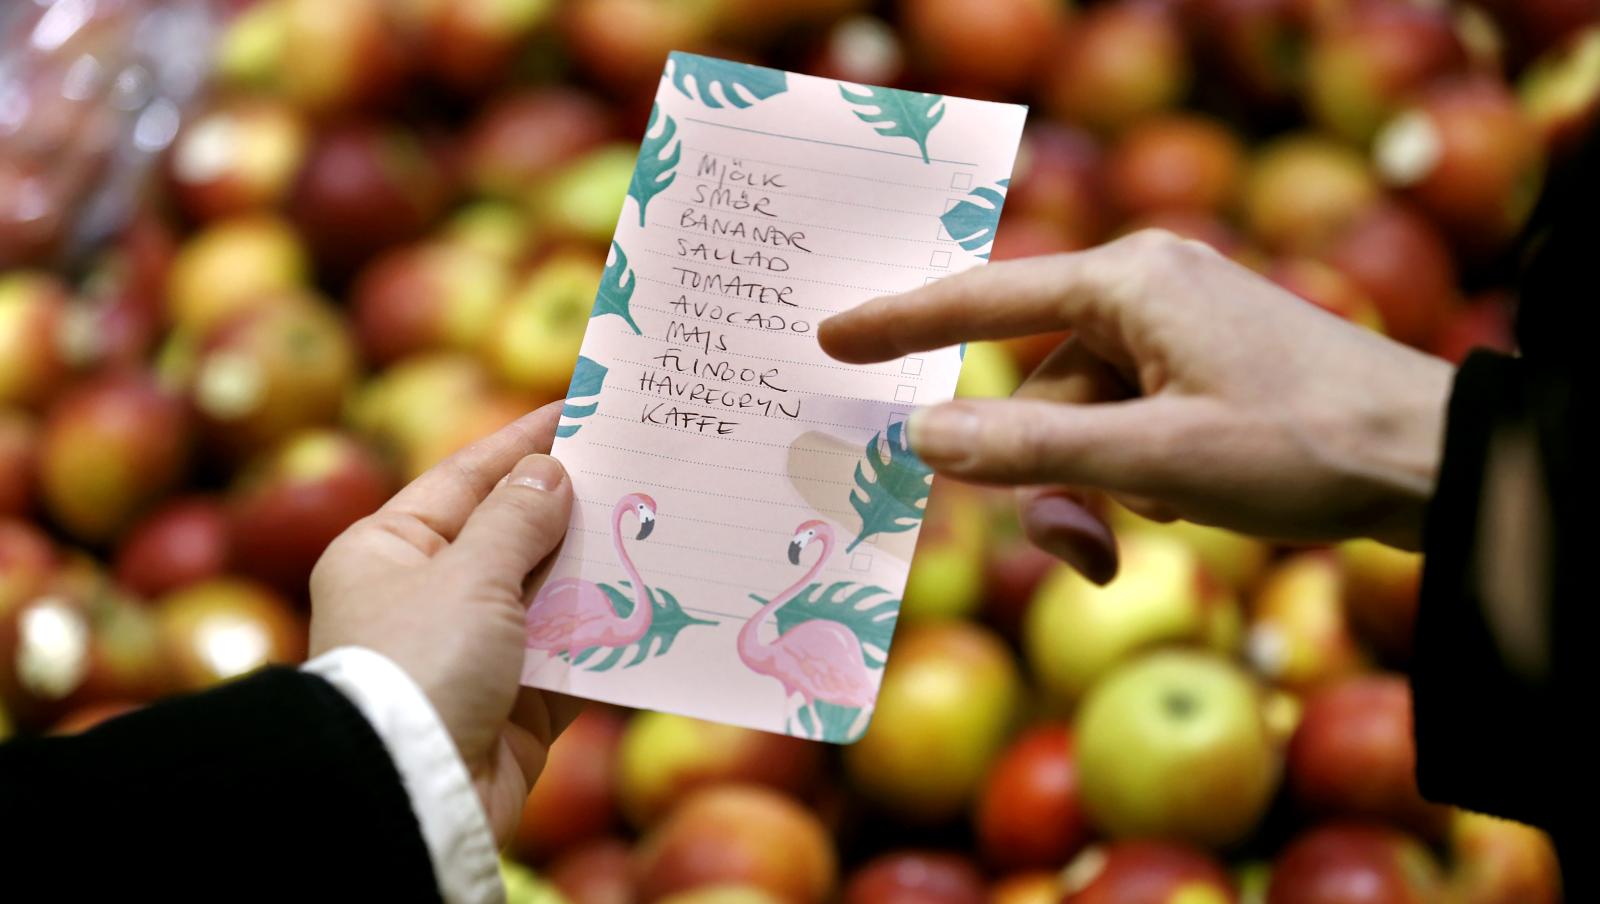 MJÖLK
SMÖR
BANANER
SALLAD
TOMATER
AVOCADO
MAJS
FLINGOR
HAVREGRYN
KAFFE